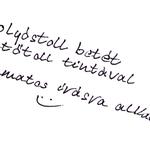 olyóstoll betét
tőtoll tintával
matos írásra alka